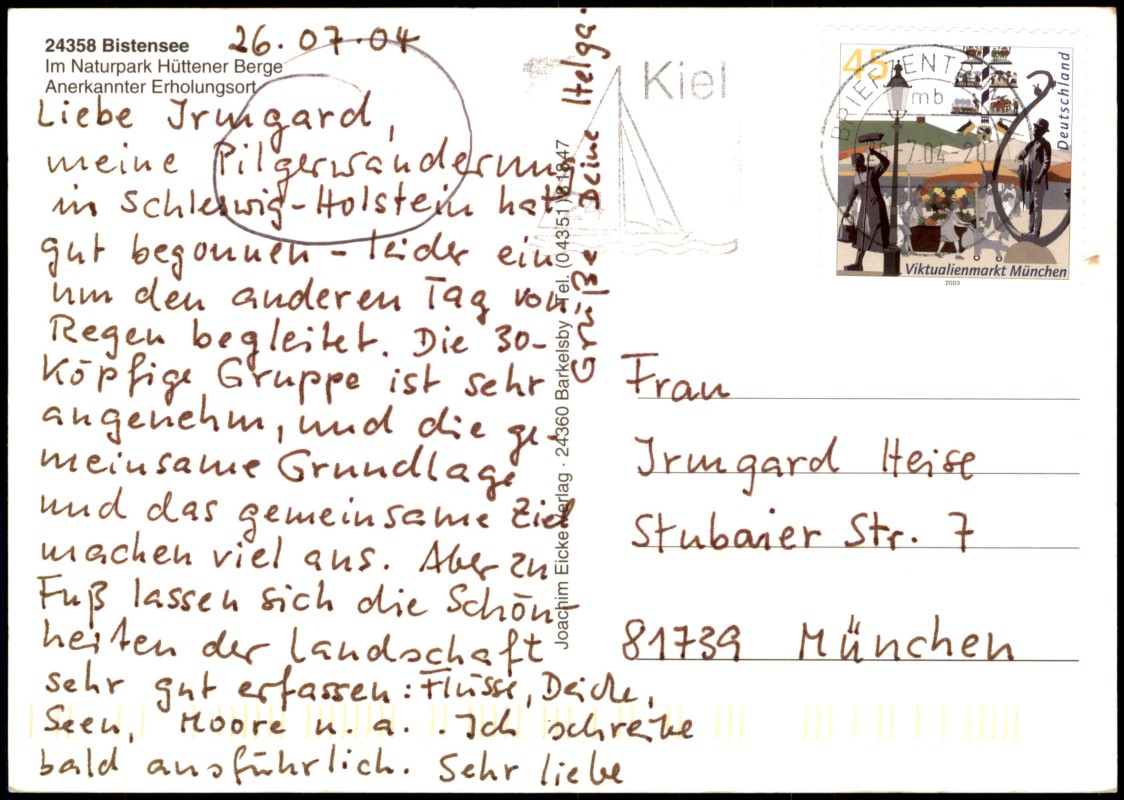 24358 Bistensee
Im Naturpark Hüttener Berge
Anerkannter Erholungsort
26.07.04
Liebe Irmgard,
meine Pilgerwanderung
in Schleswig-Holstein hat
gut begonnen - leider ein
um den anderen Tag von
Regen begleitet. Die 30-
Köpfige Gruppe ist sehr
angenehm, und die ge-
meinsame Grundlage
und das gemeinsame Ziel
machen viel aus. Aber zu
Fuß lassen sich die Schön-
heiten der Landschaft
sehr gut erfassen: Flüsse, Deiche,
Seen, Moore u. a.. Ich schreibe
bald ausführlich. Sehr liebe
Grüße Deine Helga.
Joachim Eicke Verlag · 24360 Barkelsby · Tel. (04351) 81847
Kiel
BRIEFZENTR
mb
04-20
45
Deutschland
Viktualienmarkt München
2003
Frau
Irmgard Heise
Stubaier Str. 7
81739 München